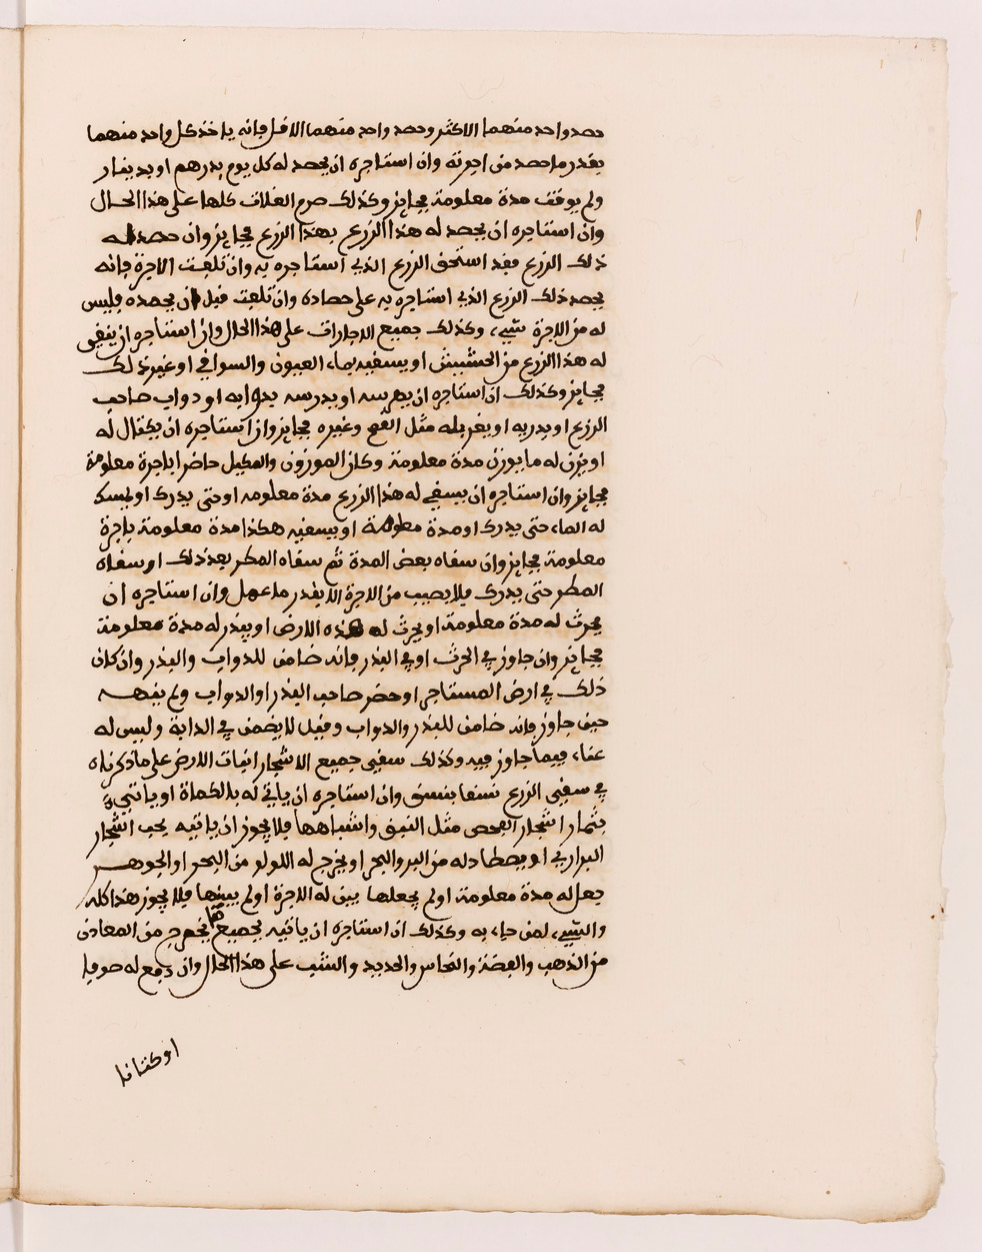 حصد واحد منهما الاكثر وحصد واحد منهما الاقل فانه ياخذ كل واحد منهما
بقدر ما حصد من اجرته وان استاجره ان يحصد له كل يوم بدرهم او بدينار
ولم يوقت مدة معلومة فجايز وكذلك صرم الغلات كلها على هذا الحال
وان استاجره ان يحصد له هذا الزرع بهذا الزرع فجايز وان حصد له
ذلك الزرع فقد استحق الزرع الذي استاجره به وان تلفت الاجرة فانه
يحصد ذلك الزرع الذي استاجره به على حصاده وان تلفت قبل ان يحصده فليس
له من الاجرة شيء وكذلك جميع الاجارات على هذا الحال وان استاجره ان ينقي
له هذا الزرع من الحشيش او يسقيه بماء العيون والسواقي او غير ذلك
فجايز وكذلك ان استاجره ان يهرسه او يدرسه بدوابه او دواب صاحب
الزرع او يدريه او يغربله مثل القمح وغيره فجايز وان استاجره ان يكتال له
او يزن له ما يوزن مدة معلومة وكان الموزون والمكيل حاضرا باجرة معلومة
فجايز وان استاجره ان يسقي له هذا الزرع مدة معلومه او حتى يدرك او يمسك
له الماء حتى يدرك او مدة معلومة او يسقيه هكذا مدة معلومة باجرة
معلومة فجايز وان سقاه بعض المدة ثم سقاه المطر بعد ذلك او سقاه
المطر حتى يدرك فلا يصيب من الاجرة الا بقدر ما عمل وان استاجره ان
يحرث له مدة معلومة او يحرث له هذه الارض او يبذر له مدة معلومة
فجايز وان جاوز في الحرث او في البذر فانه ضامن للدواب والبذر وان كان
ذلك في ارض المستاجر او حضر صاحب البذر او الدواب ولم ينهه
حين جاوز فانه ضامن للبذر والدواب وقيل لا يضمن في الدابة وليس له
عناء فيما جاوز فيه وكذلك سقي جميع الاشجار انبات الارض على ما ذكرناه
في سقي الزرع نسقا بنسق وان استاجره ان ياتي له بالكماة او ياتيه
بثمار اشجار الفحص مثل النبق واشباهها فلا يجوز ان ياتيه بحب اشجار
البراري او يصطاد له من البر والبحر او يخرج له اللولو من البحر او الجوهر
جعل له مدة معلومة او لم يجعلها بين له الاجرة او لم يبينها فلا يجوز هذا كله
والشيء لمن جاء به وكذلك ان استاجره ان ياتيه بجميع ما يخرج من المعادن
من الذهب والفضة والنحاس والحديد والشب على هذا الحال وان دفع له صوفا
او كتانا